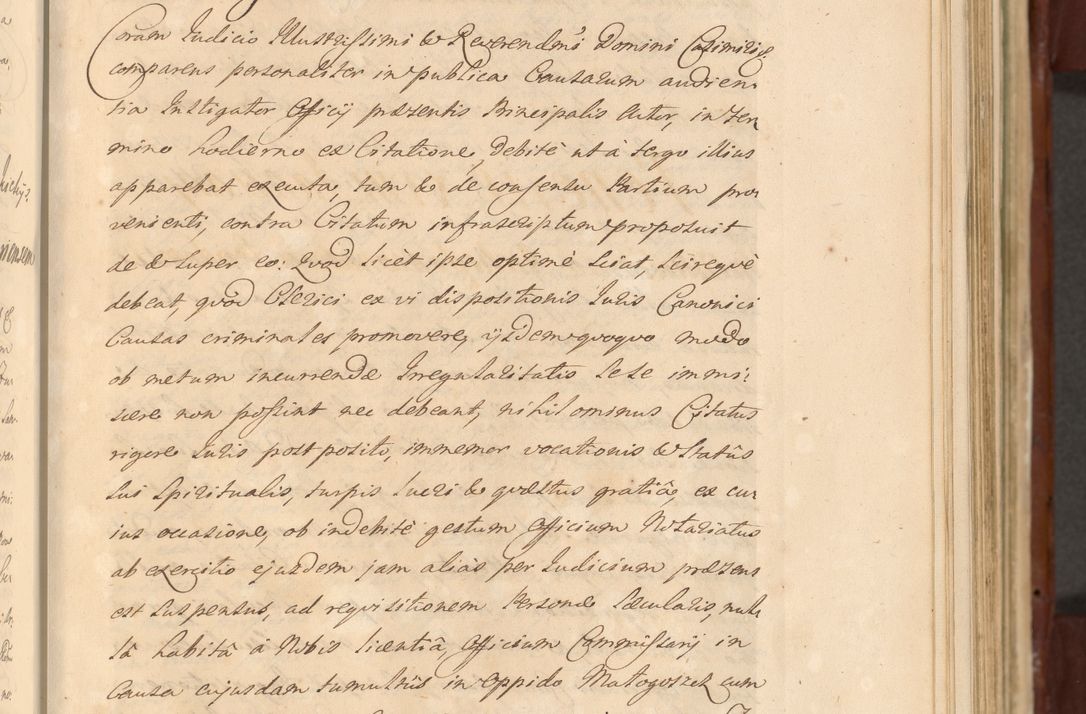 Coram Iudicio Illustrissimi & Reverendmi Domini Casimiri &c.
comparens personaliter in publica Causarum audien-
tia Instigator Officij præsentis Principalis Actor, in Ter
mino hodierno ex Citatione, debitè ut à tergo illius
apparebat executa, tum & de consensu Partium pro
venienti, contra Citatum infrascriptum proposuit
de & super eo: Quod licèt ipse optimè sciat, scireque
debeat, quod Clerici ex vi dispositionis Iuris Canonici
Causas criminales promovere, ijsdem quoquo modo
ob metum incurrendæ Irregularitatis sese immi-
scere non possint nec debeant, nihilominus Citatus
rigore Iuris postposito, immemor vocationis & Statûs
sui Spiritualis, turpis lucri & quæstus gratiâ, ex cu-
ius occasione, ob indebitè gestum Officium Notariatus
ab exercitio ejusdem jam aliàs per Iudicium præsens
est suspensus, ad requisitionem Personæ Sæcularis, nul-
lâ habitâ à Nobis licentiâ Officium Commissarij in
Causa cujusdam tumultûs in Oppido Małogoszcz cum